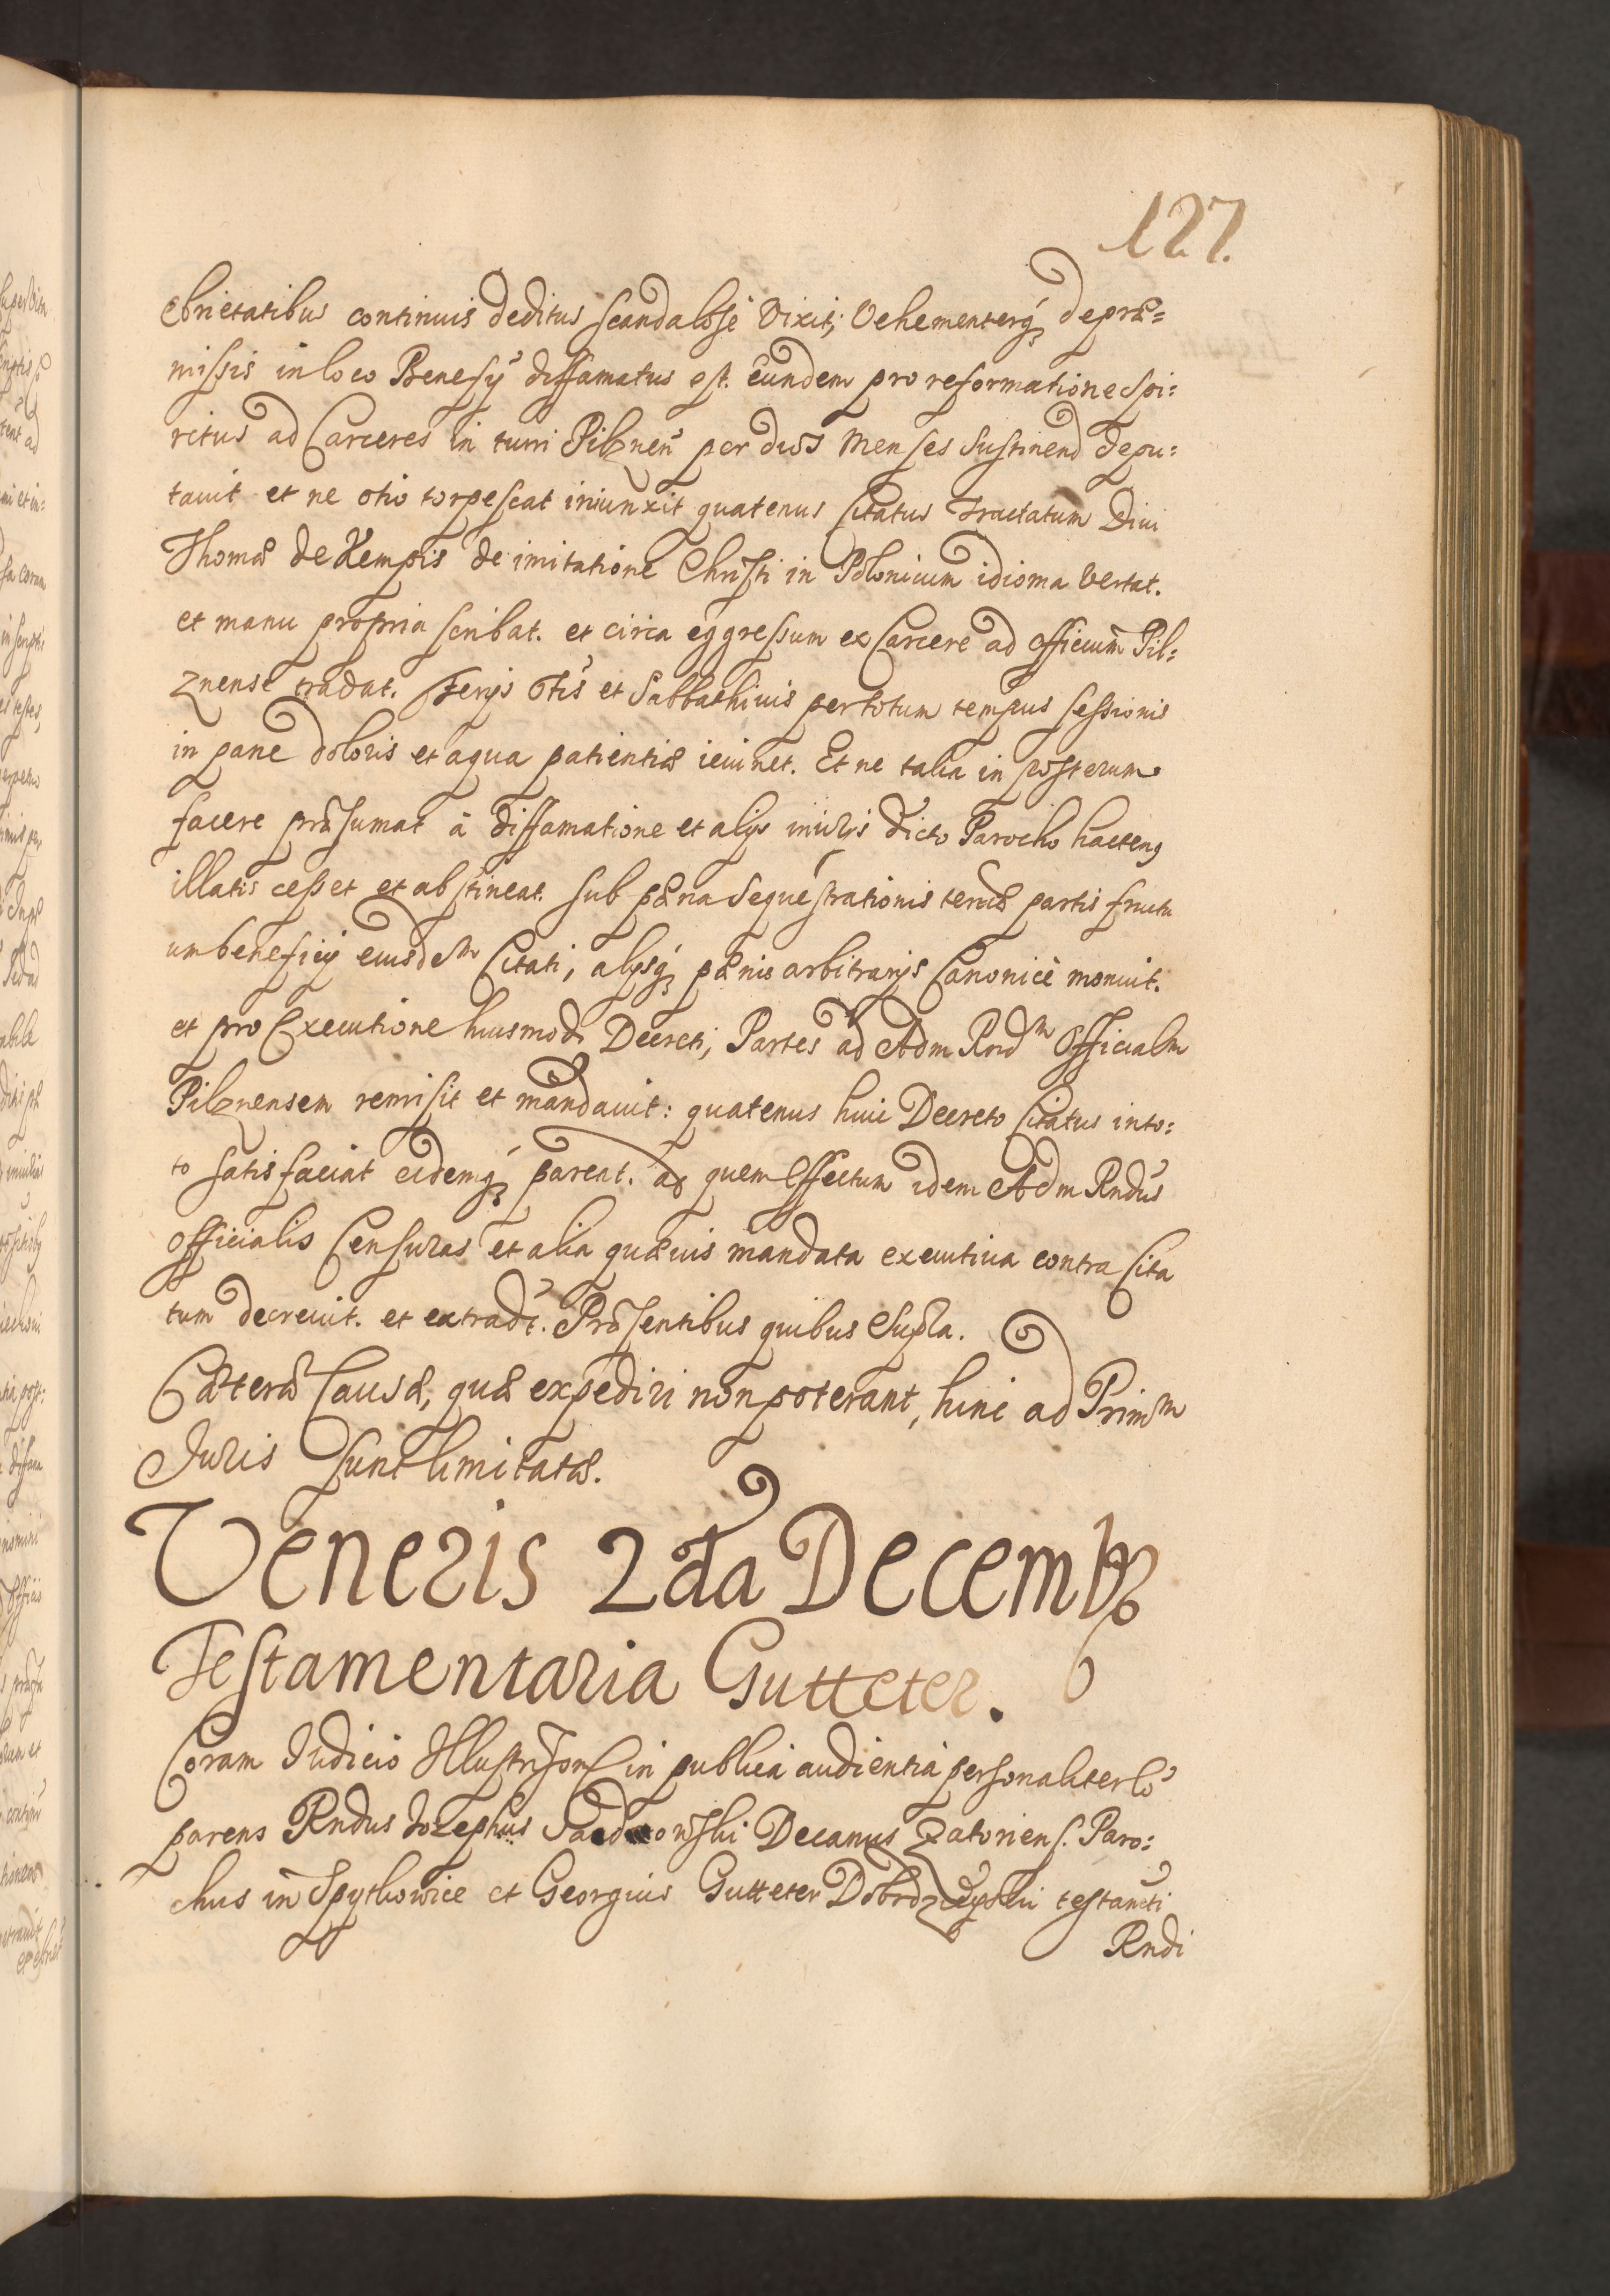 127.
ebrietatibus continuis deditus scandalosè vixit, vehementerq́ de præ=
missis in loco Benefÿ diffamatus est. eundem pro reformatione spi:
ritus ad Carceres in turri Pilznen̄ per duos Menses sustinend depu:
tauit et ne otio torpescat iniunxit quatenus Citatus tractatum Diui
Thomæ de Kempis de imitatione Christi in Polonicum idioma vertat.
et manu propria scribat. et circa eggressum ex Carcere ad officium Pil:
znense tradat. Ferijs 6tis et Sabbathiuis per totum tempus sessionis
in pane doloris et aqua patientiæ ieiunet. Et ne talia in posterum
facere præsumat à diffamatione et alijs iniurijs dicto Parocho hactenq
illatis cesset et abstineat. sub pæna sequestrationis tertiæ partis fructu
um beneficij eiusdem Citati, alijsq́ pænis arbitrarijs Canonicè monuit.
et pro Executione huiusmodi Decreti, Partes ad Adm Rndm Officialm
Pilznensem remisit et mandauit: quatenus huic Decreto Citatus in to:
to satisfaciat eidemq́ pareat. ad quem Effectum idem Adm Rndus
Officialis Censuras et alia quæuis mandata executiua contra Cita
tum decreuit. et extradt. Præsentibus quibus supra.
Cæteræ Causæ, quæ expediri non poterant, hinc ad Primm
Juris sunt limitatæ.
Veneris 2da Decembr
Testamentaria Gutteter.
Coram Judicio Illustr in publica audientia personaliter Co
parens Rndus Josephus Decanus Zatoriens. Paro:
chus in Spytkowice et Georgius Gutteter Dobrodzieyski testamti
Rndi